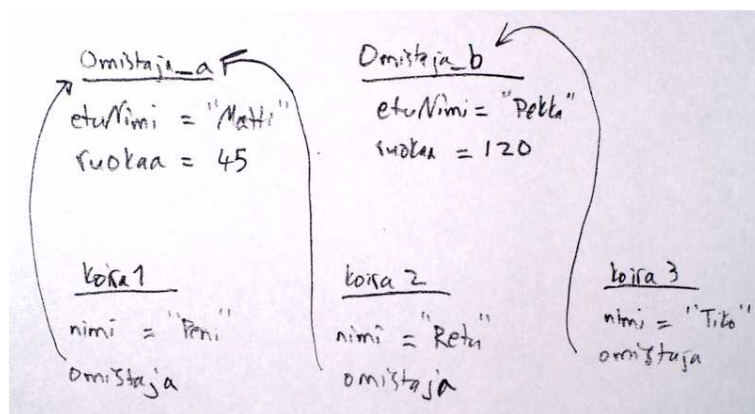 Omistaja_a
etuNimi = "Matti"
ruokaa = 45
Omistaja_b
etuNimi = "Pekka"
ruokaa = 120
koira 1
nimi = "Peni"
omistaja
koira 2
nimi = "Retu"
omistaja
koira 3
nimi = "Tito"
omistaja